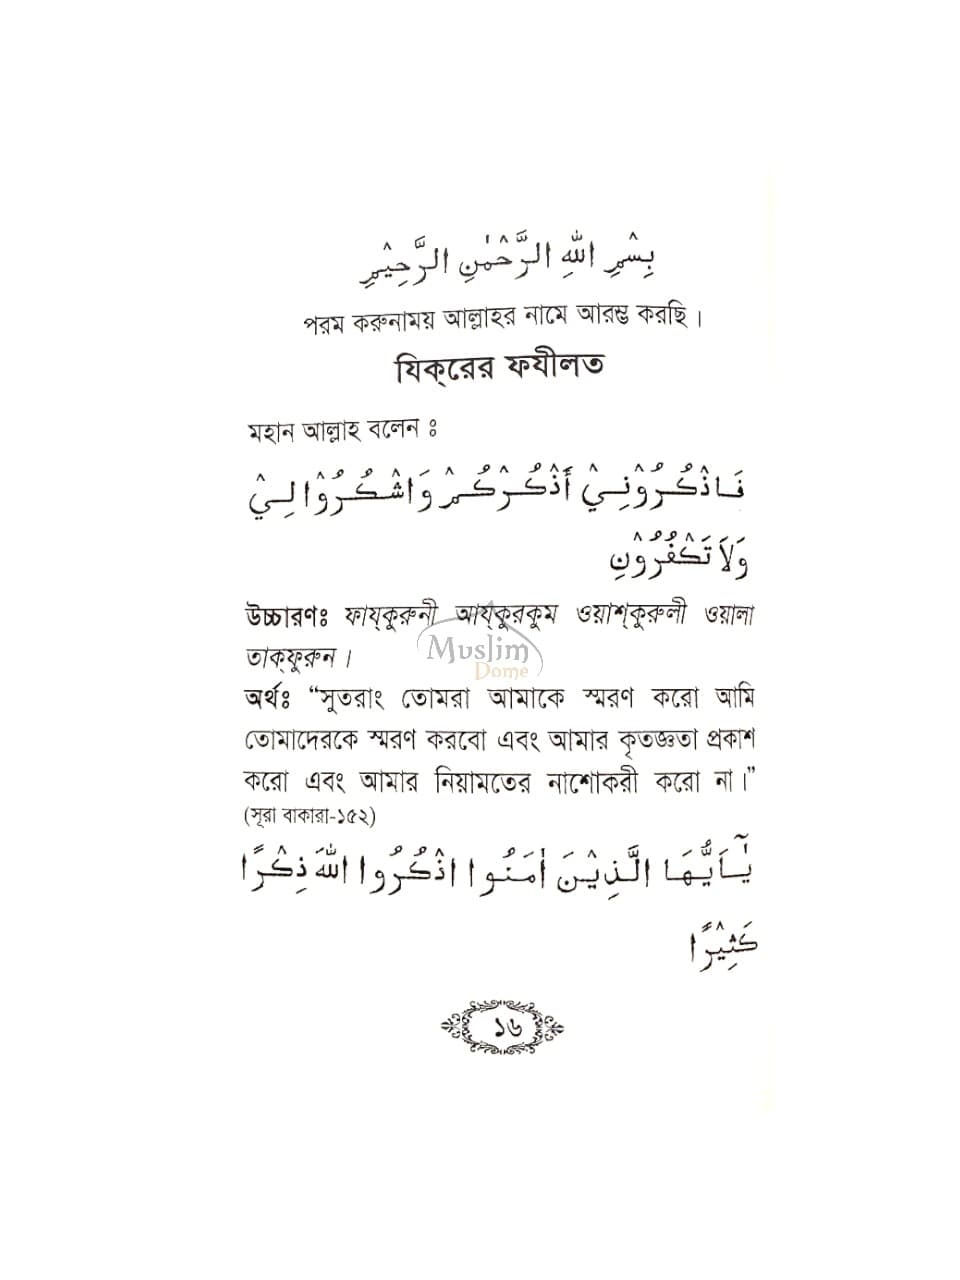 بِسْمِ اللهِ الرَّحْمٰنِ الرَّحِيْمِ
পরম করুনাময় আল্লাহর নামে আরম্ভ করছি ।
যিক্‌রের ফযীলত
মহান আল্লাহ বলেন ঃ
فَاذْكُرُوْنِيْ أَذْكُرْكُمْ وَاشْكُرُوْا لِيْ
وَلَا تَكْفُرُوْنِ
উচ্চারণঃ ফায্‌কুরুনী আয্‌কুরকুম ওয়াশ্‌কুরুলী ওয়ালা
তাক্‌ফুরুন ।
Muslim
Dome
অর্থঃ “সুতরাং তোমরা আমাকে স্মরণ করো আমি
তোমাদেরকে স্মরণ করবো এবং আমার কৃতজ্ঞতা প্রকাশ
করো এবং আমার নিয়ামতের নাশোকরী করো না।”
(সূরা বাকারা-১৫২)
يٰٓأَيُّهَا الَّذِيْنَ اٰمَنُوا اذْكُرُوا اللهَ ذِكْرًا
كَثِيْرًا
১৬